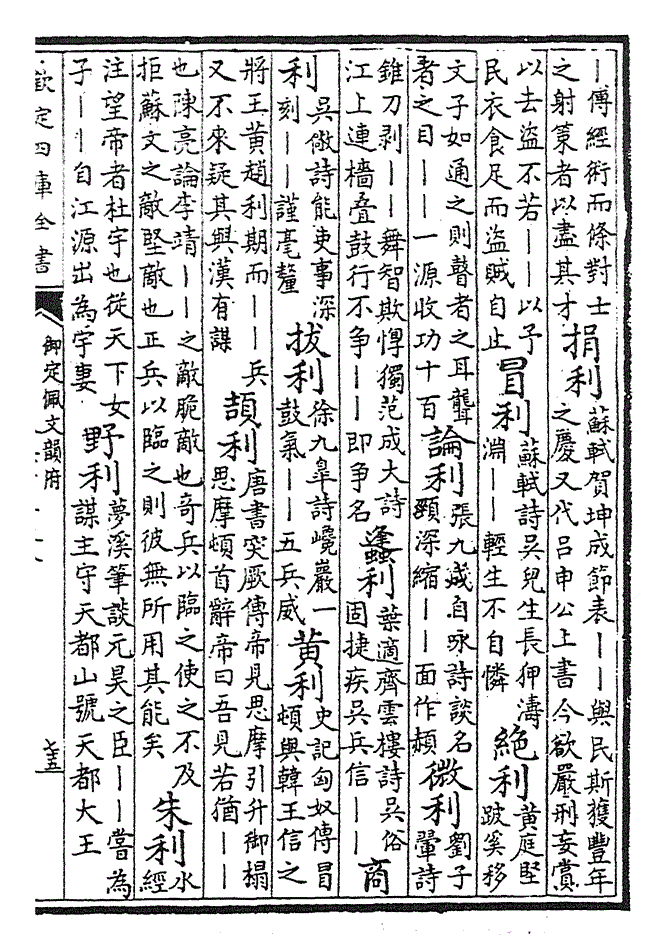 ——傅經術而條對士
之射策者以盡其才
捐利
蘇軾賀坤成節表——與民斯獲豐年
之慶又代呂申公上書今欲嚴刑妄賞
以去盜不若——以予
民衣食足而盜賊自止
冒利
蘇軾詩吳兒生長狎濤
淵——輕生不自憐
絶利
黃庭堅
跛奚移
文子如通之則瞽者之耳聾
者之目——一源收功十百
論利
張九成自咏詩談名
頸深縮——面作頳
微利
劉子
翬詩
錐刀剥——舞智欺惸獨范成大詩
江上連檣叠鼓行不争——即争名
蠭利
葉適齊雲樓詩吳俗
固捷疾吳兵信——
商
利
吳儆詩能吏事深
刻——謹毫釐
拔利
徐九皋詩巉巖一
鼓氣——五兵威
黃利
史記匈奴傳冒
頓與韓王信之
將王黃趙利期而——兵
又不來疑其與漢有謀
頡利
唐書突厥傳帝見思摩引升御榻
思摩頓首辭帝曰吾見若猶——
也陳亮論李靖——之敵脆敵也奇兵以臨之使之不及
拒蘇文之敵堅敵也正兵以臨之則彼無所用其能矣
朱利
水
經
注望帝者杜宇也從天下女
子——自江源出為宇妻
野利
夢溪筆談元昊之臣——嘗為
謀主守天都山號天都大王
欽定四庫全書
御定佩文韻府
七五